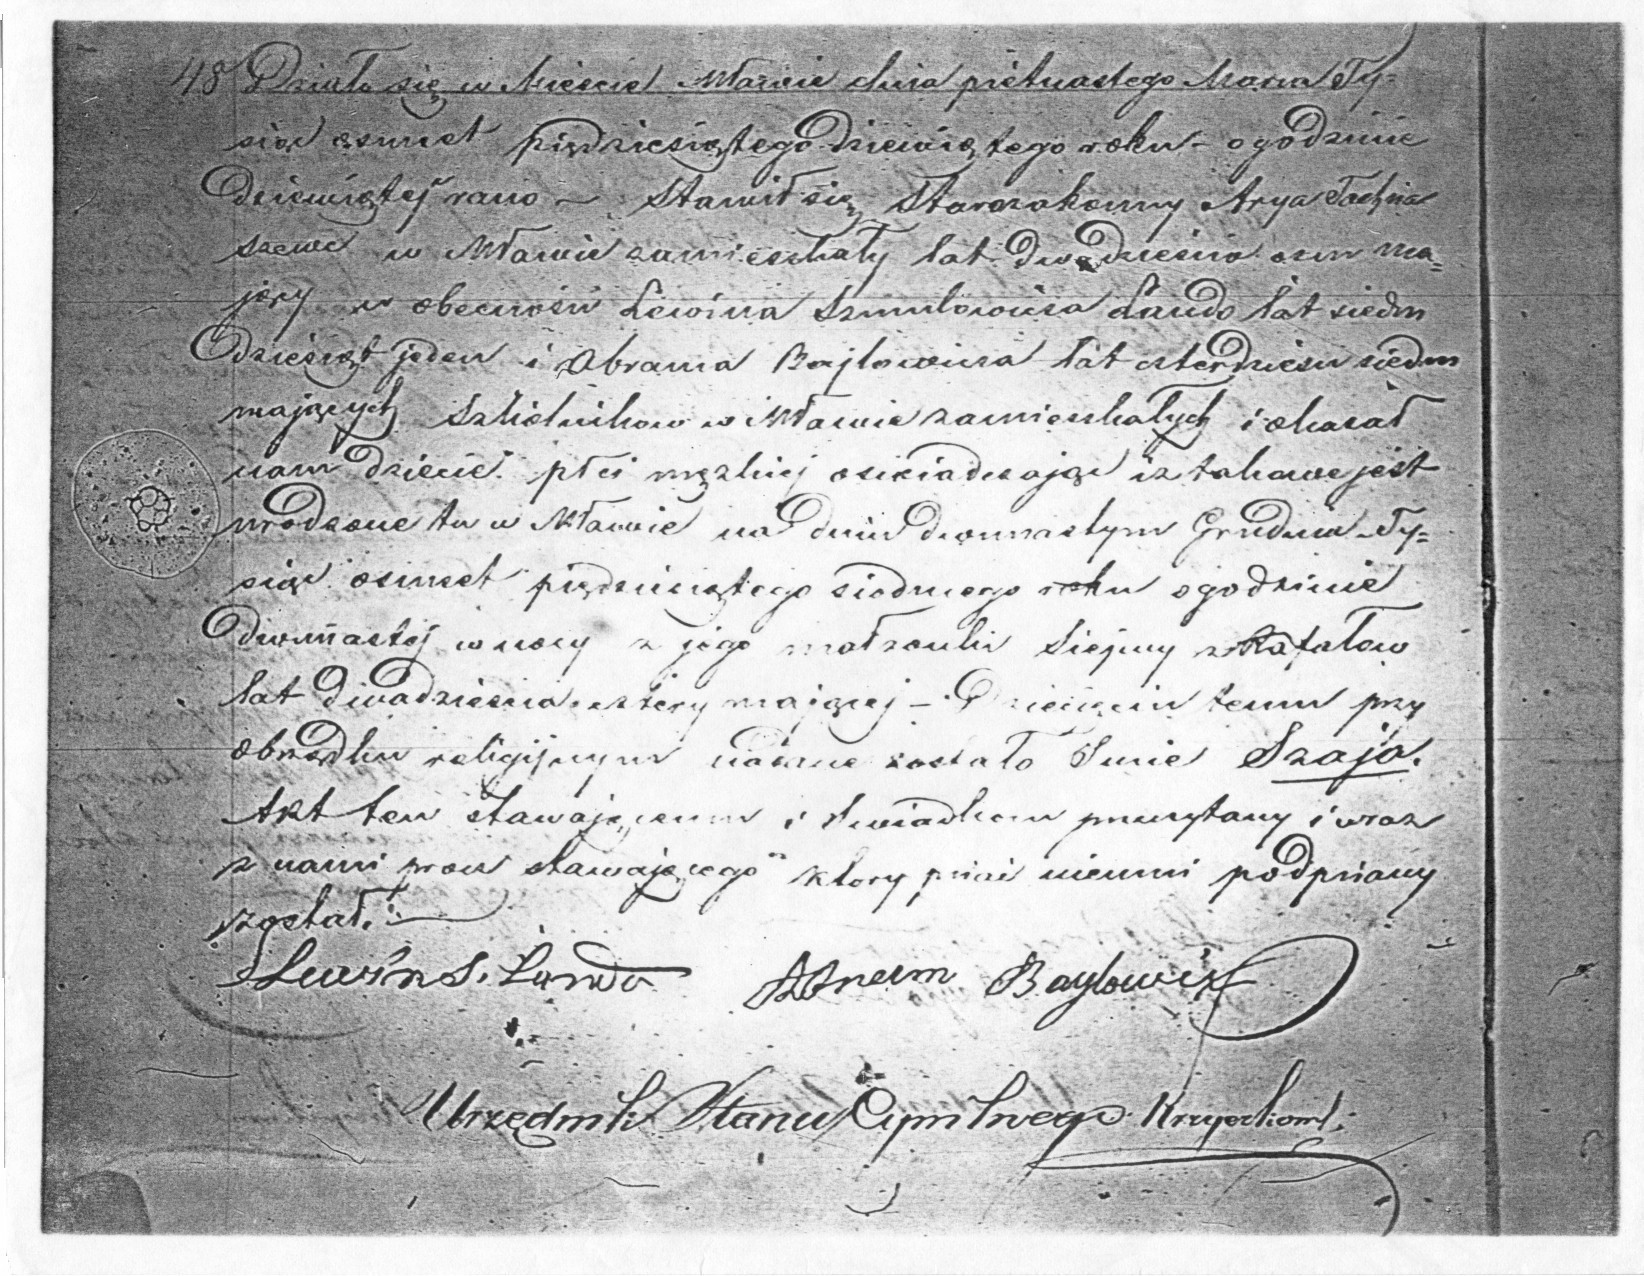 48 Działo się w Mieście Mławie dnia piętnastego Marca Ty=
siąc osmset piędziesiątego dziewiątego roku - o godzinie
dziewiątej rano - Stawił się Starozakonny Arya
szewc w Mławie zamieszkały lat dwadzieścia osm ma=
jący w obecności Lewina Szmulowicza Lando lat siedm
dziesiąt jeden i Abrama Bajlowicza lat czterdzieści siedm
mających Szkolników w Mławie zamieszkałych i okazał
nam dziecie płci męzkiej oświadczając iż takowe jest
urodzone tu w Mławie na dniu dwunastym Grudnia Ty=
siąc osmset piędziesiątego siodmego roku o godzinie
dwunastej w nocy z jego małżonki Siejwy z Rafałow
lat dwadzieścia cztery mającej - Dziecięciu temu przy
obrządku religijnym nadane zostało Imie Szaja.
Akt ten stawającemu i świadkom przeczytany i wraz
z nami procz stawającego ktory pisać nieumi podpisany
został.
Lewin S. Lando Abram Baylowicz
Urzędnik Stanu Cywilnego